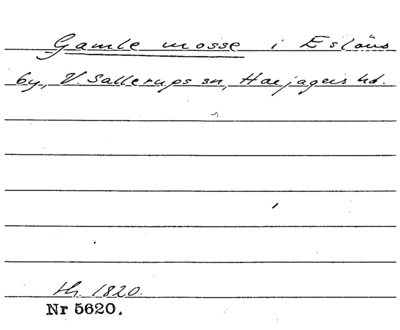 Gamle mosse i Eslövs
by, V. Sallerups sn, Harjagers hd.
th. 1820.
Nr 5620.